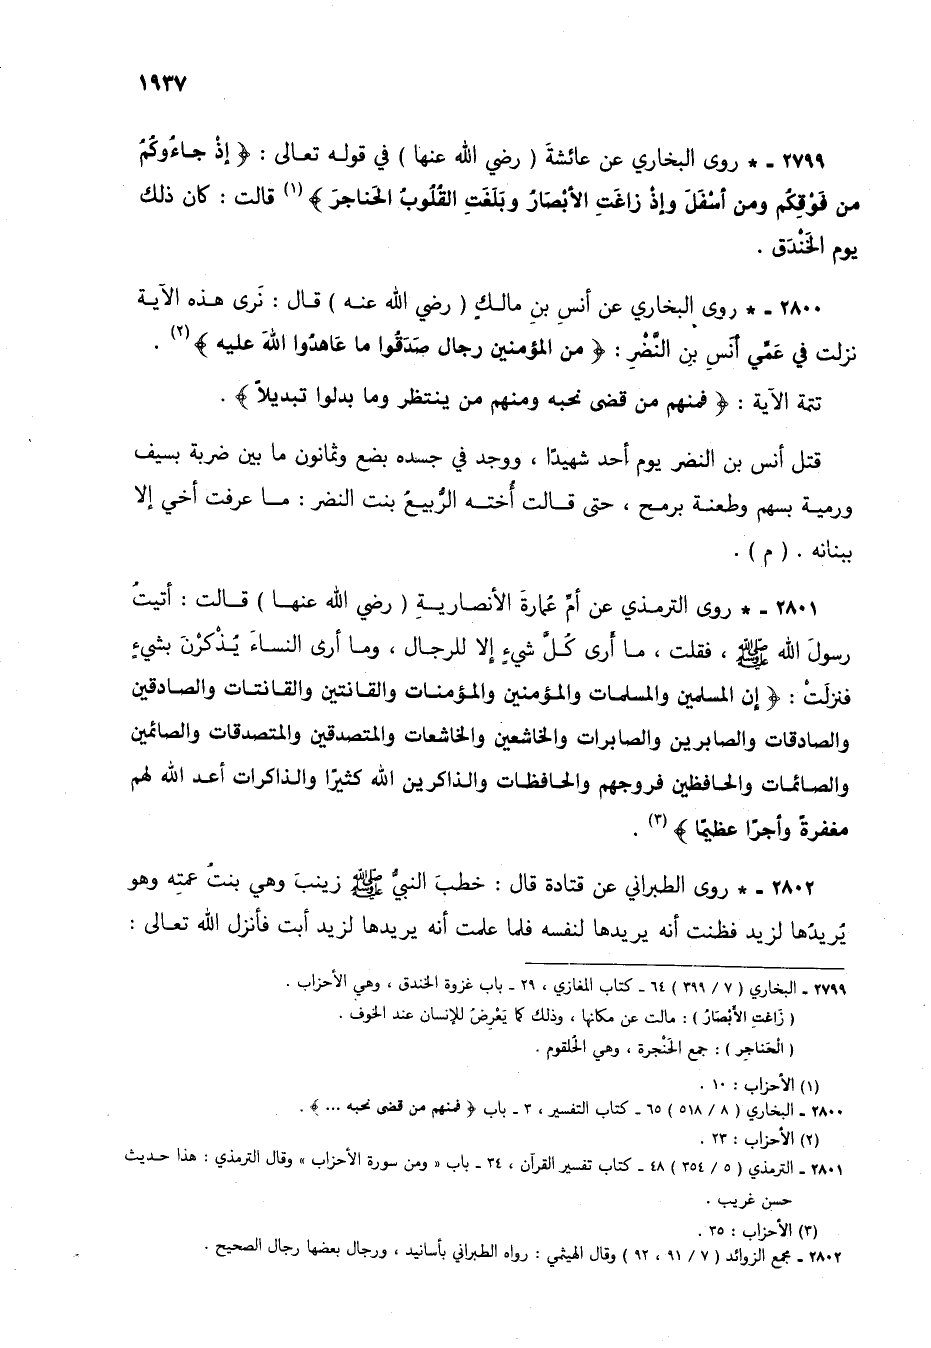 ١٩٣٧
٢٧٩٩ - * روى البخاري عن عائشةَ ( رضي الله عنها ) في قوله تعالى : ﴿ إذْ جاءُوكُمْ
من فَوْقِكُم ومن أسْفَلَ وإذْ زاغَتِ الأبْصَارُ وبَلَغَتِ القُلُوبُ الحَناجرَ ﴾ (١) قالت : كان ذلك
يوم الخَنْدَق .
٢٨٠٠ - * روى البخاري عن أنس بن مالكٍ ( رضي الله عنه ) قال : نَرى هذه الآية
نزلت في عَمِّي أنَسِ بنِ النَّضْرِ : ﴿ من المؤمنين رجال صَدَقُوا ما عَاهدُوا اللهَ عليه ﴾ (٢) .
تتمة الآية : ﴿ فمنهم من قضى نحبه ومنهم من ينتظر وما بدلوا تبديلاً ﴾ .
قتل أنس بن النضر يوم أحد شهيدًا ، ووجد في جسده بضع وثمانون ما بين ضربة بسيف
ورمية بسهم وطعنة برمح ، حتى قالت أُخته الرُّبيعُ بنت النضر : ما عرفت أخي إلا
ببنانه . ( م ) .
٢٨٠١ - * روى الترمذي عن أمِّ عُمارةَ الأنصاريةِ ( رضي الله عنها ) قالت : أتيتُ
رسولَ الله ﷺ ، فقلت ، ما أرى كُلَّ شيءٍ إلا للرجال ، وما أرى النساءَ يُذْكرْنَ بشيءٍ
فنزلَتْ : ﴿ إن المسلمين والمسلمات والمؤمنين والمؤمنات والقانتين والقانتات والصادقين
والصادقات والصابرين والصابرات والخاشعين والخاشعات والمتصدقين والمتصدقات والصائمين
والصائمات والحافظين فروجهم والحافظات والذاكرين الله كثيرًا والذاكرات أعد الله لهم
مغفرةً وأجرًا عظيمًا ﴾ (٣) .
٢٨٠٢ - * روى الطبراني عن قتادة قال : خطبَ النبيُّ ﷺ زينبَ وهي بنتُ عمتِه وهو
يُريدُها لزيد فظنت أنه يريدها لنفسه فلما علمت أنه يريدها لزيد أبت فأنزل الله تعالى :
٢٧٩٩ - البخاري ( ٧ / ٣٩٩ ) ٦٤ - كتاب المغازي ، ٢٩ - باب غزوة الخندق ، وهي الأحزاب .
( زَاغَتِ الأبْصَارُ ) : مالت عن مكانها ، وذلك كما يَعْرِضُ للإنسان عند الخوف .
( الْحَناجر ) : جمع الحَنْجرة ، وهي الحُلقوم .
(١) الأحزاب : ١٠ .
٢٨٠٠ - البخاري ( ٨ / ٥١٨ ) ٦٥ - كتاب التفسير ، ٣ - باب ﴿ فمنهم من قضى نحبه ... ﴾ .
(٢) الأحزاب : ٢٣ .
٢٨٠١ - الترمذي ( ٥ / ٣٥٤ ) ٤٨ - كتاب تفسير القرآن ، ٣٤ - باب « ومن سورة الأحزاب » وقال الترمذي : هذا حديث
حسن غريب .
(٣) الأحزاب : ٣٥ .
٢٨٠٢ - مجمع الزوائد ( ٧ / ٩١ ، ٩٢ ) وقال الهيثمي : رواه الطبراني بأسانيد ، ورجال بعضها رجال الصحيح .